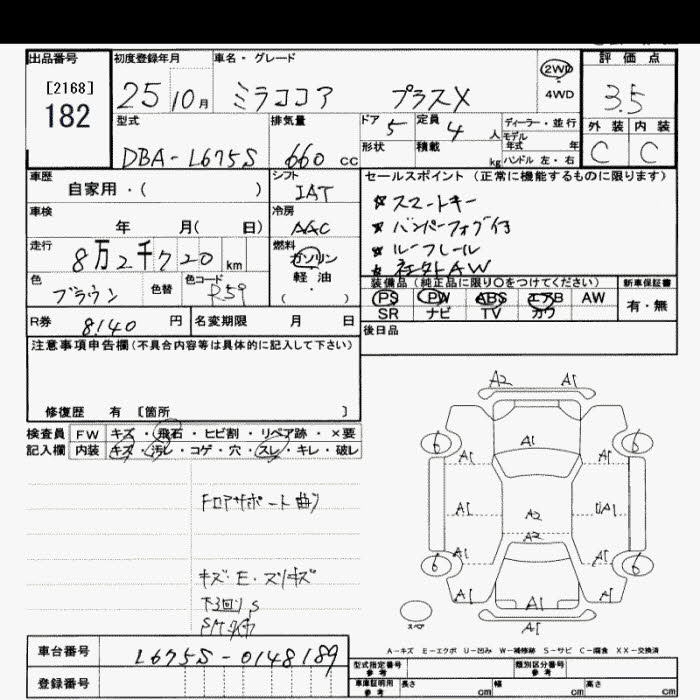 出品番号 初度登録年月 車名・グレード 評価点
[2168]
182
25 10月 ミラココア プラスX 2WD 4WD 3.5
型式 排気量 ドア 定員 ディーラー・並行 外装 内装
DBA-L675S 660 cc 5 4人 モデル年式 年 C C
形状 積載 kg ハンドル 左・右
車歴 シフト セールスポイント (正常に機能するものに限ります)
自家用・( ) IAT
★スマートキー
車検 冷房
年 月( 日) AAC
★バンパーフォグ付
★ルーフレール
★社外AW
走行 燃料
8万2千7 20 km ガソリン
軽油
・( )
色 色替 色コード
ブラウン R59
装備品 (純正品に限り○をつけてください) 新車保証書
PS PW ABS エアB AW 有・無
SR ナビ TV カワ
R券 8140 円 名変期限 月 日
後日品
注意事項申告欄 (不具合内容等は具体的に記入して下さい)
修復歴 有 [箇所 ]
検査員 FW キズ・飛石・ヒビ割・リペア跡・×要
記入欄 内装 キズ・汚レ・コゲ・穴・スレ・キレ・破レ
フロアサポート曲り
キズ・E・スリキズ
下回り S
A2 A1
A1
6 6
A1 A1
A1 A2 A1
A2
A1 A1
6 6
A1 A1 A1
A1
スペア
A-キズ E-エクボ U-凹み W-補修跡 S-サビ C-腐食 XX-交換済
車台番号 L675S-0148189
登録番号
型式指定番号 参考 類別区分番号 参考
車庫証明用 参考 長さ cm 幅 cm 高さ cm